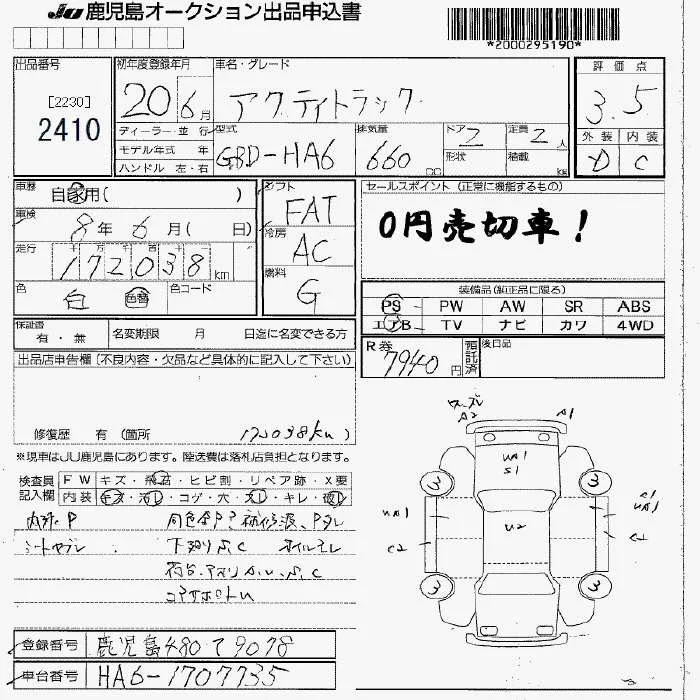 JU 鹿児島オークション出品申込書
*2000295190*
出品番号
[2230]
2410
初年度登録年月
20 6月
車名・グレード
アクティトラック
評価点
3.5
ディーラー・並行
モデル年式 年
ハンドル 左・右
型式
GBD-HA6
排気量
660 CC
ドア 2
形状
定員 2人
積載 kg
外装 内装
D C
車歴
自家用( )
車検
8年 6月( 日)
走行
十万千百十
172038 km
色
白
色替
色コード
シフト
FAT
冷房
AC
燃料
G
セールスポイント (正常に機能するもの)
0円売切車!
装備品(純正品に限る)
PS PW AW SR ABS
エアB TV ナビ カワ 4WD
保証書
有・無
名変期限 月 日迄に名変できる方
R券
7940円
預託済
後日品
出品店申告欄(不良内容・欠品など具体的に記入して下さい)
修復歴 有 (箇所 172038km)
※現車はJU鹿児島にあります。陸送費は落札店負担となります。
検査員記入欄
FW キズ・飛石・ヒビ割・リペア跡・X要
内装 キズ・汚レ・コゲ・穴・スレ・キレ・破レ
シートヤブレ
下廻りS、C
登録番号 鹿児島480 て9078
車台番号 HA6-1707735
A2 A1
UA1
S1
3 3
U2
UA1
C2
A1
UA1
C2
3 3